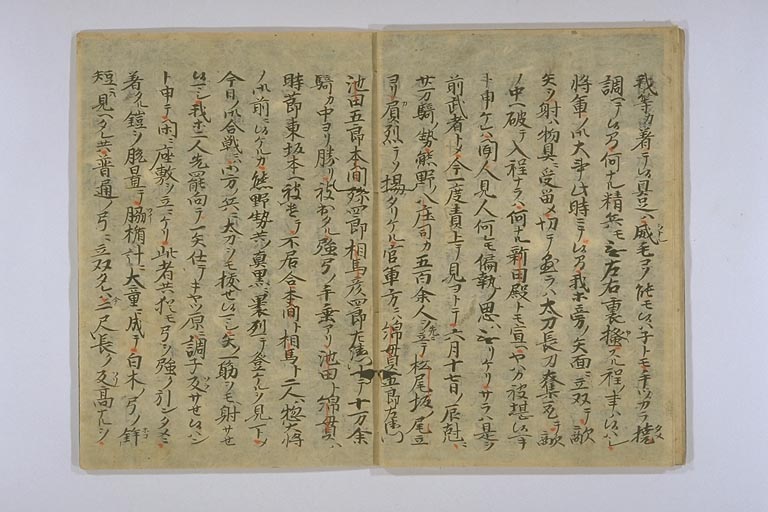 我等カ著テ候具足ハ威毛コソ能モ候ハ子トモ手ツカラ撓
調ヘテ候ヘハ何ナル精兵モ左右裏掻ヌル程ノ事ハ候ハシ
将軍ノ御大事此時ニテ候ヘハ我等旁ノ矢面ニ立双テ敵
矢ヲ射ハ物具ニ受留メ切テ懸ラハ太刀長刀奪取テ敵
ノ中ヘ破テ入程ナラハ何ナル新田殿トモ宣ヘヤハカ被堪候ヘキ
ト申ケレハ聞人見人何モ偏執ノ思ハ无リケリサラハ是ヲ
前武者トメ今一度責上テ見ヨトテ六月十七日ノ辰尅ニ
廿万騎ノ勢熊野ノ八庄司カ五百余人ヲ先ニ立テ松尾坂ノ尾立
ヨリ鴈烈テソ揚タリケル官軍方ニハ綿貫五郎左衛門
池田五郎本間孫四郎相馬彦四郎左衛門トテ十万余
騎カ中ヨリ勝リ被出タル強弓ノ手垂アリ池田ト綿貫トハ
時節東坂本ヘ被遣テ不居合本間ト相馬ト二人ハ惣大将
ノ御前ニ候ケルカ熊野勢共ノ真黒ニ裹列テ登ケルヲ見下
今日ノ御合戦ニハ御方兵ニ太刀ヲモ抜セ候マシ矢一筋ヲモ射サセ
候マシ我等二人先罷向テ一矢仕テキヤツ原ニ調子及サセ候ハン
ト申テ閑ニ座敷ヲ立ニケリ此者共猶モ弓ヲ強ク引ンタメニ
著タル鎧ヲ脱置テ脇楯計ニ大童ニ成テ白木ノ弓ノ鉾
短ニ見ヘケレ共普通ノ弓ニ立双タレハ今二尺長ク反高ナルヲ